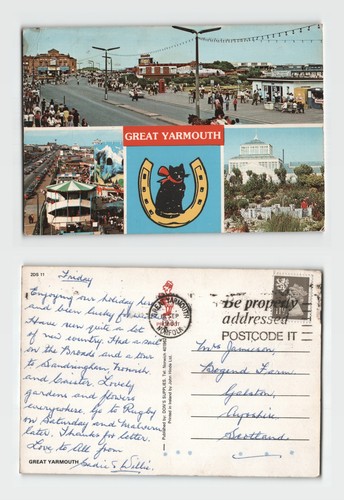 GREAT YARMOUTH
2DS 11
Friday
Enjoying our holiday here
and been lucky for
Have seen quite a lot
of new country. Had a sail
on the Broads and a tour
to Sandringham, Norwich
and Caister. Lovely
gardens and flowers
everywhere. Go to Rugby
on Saturday and Malvern
later. Thanks for letter.
Love to All from
Sadie & Willie.
GREAT YARMOUTH
Published by: DON'S SUPPLIES, Tel. Norwich
Printed in Ireland by John Hinde Ltd.
GREAT YARMOUTH
SEP
NORFOLK
Be properly
addressed
POSTCODE IT
Mrs Jameson,
Bogend Farm,
Galston,
Ayrshire,
Scotland.